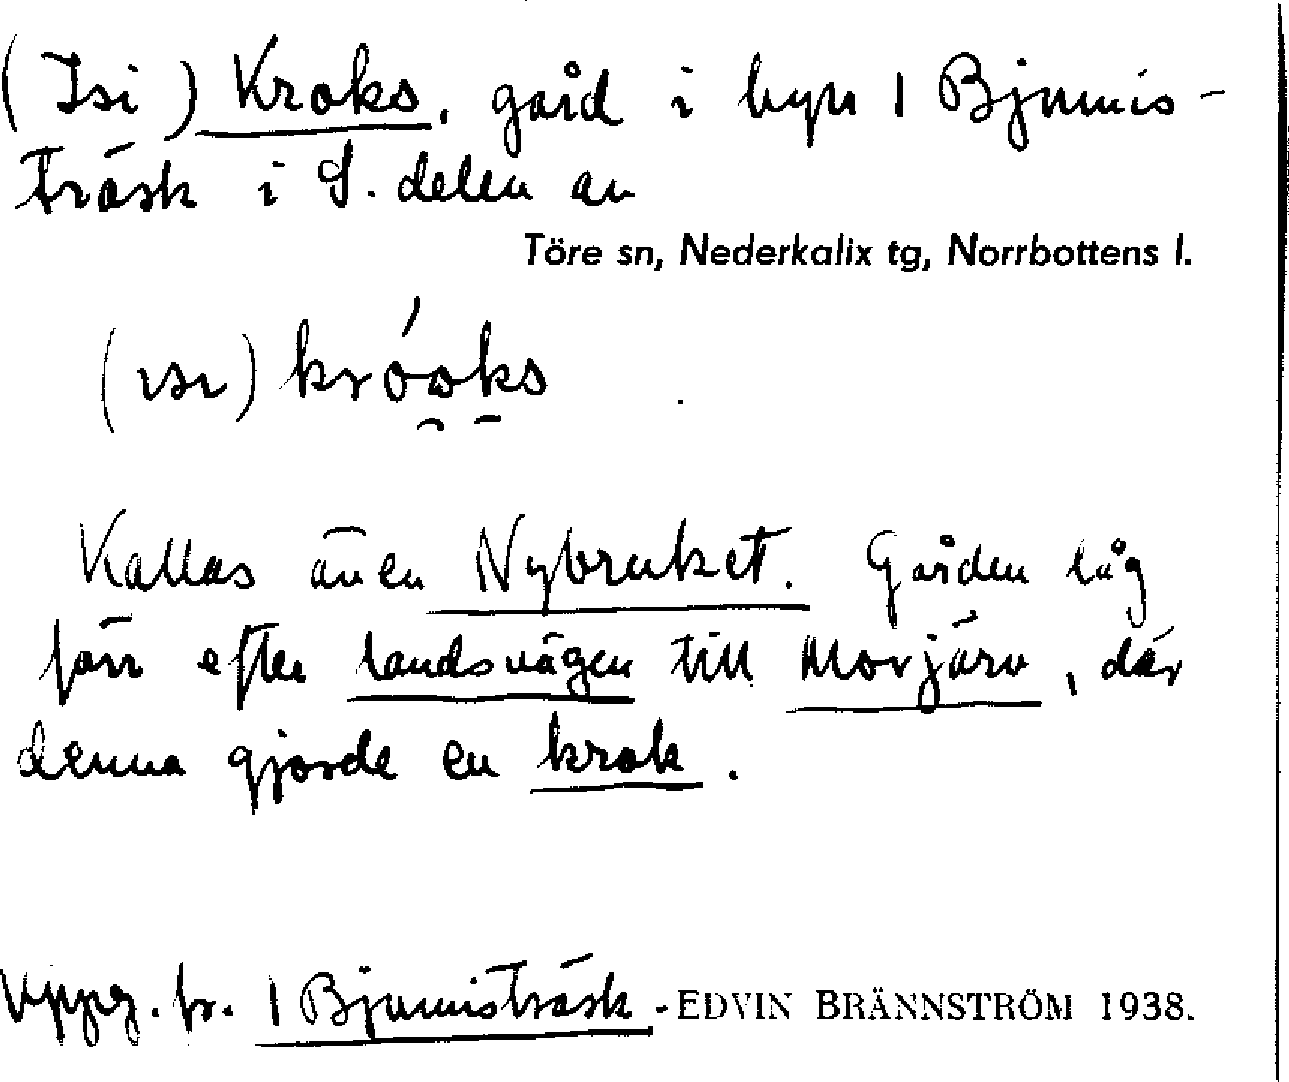 (Isi) Kroks, gård i byn 1 Bjumis-
träsk i S. delen av
Töre sn, Nederkalix tg, Norrbottens l.
(ısı) króoks
Kallas även Nybruket. Gården låg
förr efter landsvägen till Morjärv, där
denna gjorde en krok.
Uppg. fr. 1 Bjumisträsk. EDVIN BRÄNNSTRÖM 1938.